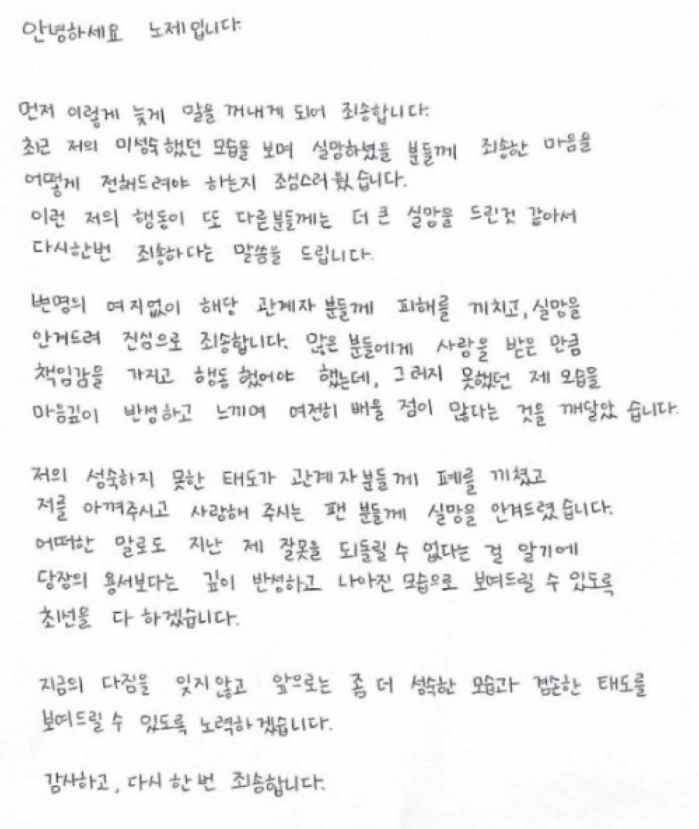 안녕하세요 노제입니다.
먼저 이렇게 늦게 말을 꺼내게 되어 죄송합니다.
최근 저의 미성숙했던 모습을 보며 실망하셨을 분들께 죄송한 마음을
어떻게 전해드려야 하는지 조심스러웠습니다.
이런 저의 행동이 또 다른분들께는 더 큰 실망을 드린것 같아서
다시한번 죄송하다는 말씀을 드립니다.
변명의 여지없이 해당 관계자 분들께 피해를 끼치고, 실망을
안겨드려 진심으로 죄송합니다. 많은 분들에게 사랑을 받은 만큼
책임감을 가지고 행동했어야 했는데, 그러지 못했던 제 모습을
마음깊이 반성하고 느끼며 여전히 배울 점이 많다는 것을 깨달았습니다.
저의 성숙하지 못한 태도가 관계자분들께 폐를 끼쳤고
저를 아껴주시고 사랑해 주시는 팬 분들께 실망을 안겨드렸습니다.
어떠한 말로도 지난 제 잘못을 되돌릴 수 없다는 걸 알기에
당장의 용서보다는 깊이 반성하고 나아진 모습으로 보여드릴 수 있도록
최선을 다 하겠습니다.
지금의 다짐을 잊지않고 앞으로는 좀 더 성숙한 모습과 겸손한 태도를
보여드릴 수 있도록 노력하겠습니다.
감사하고, 다시 한번 죄송합니다.